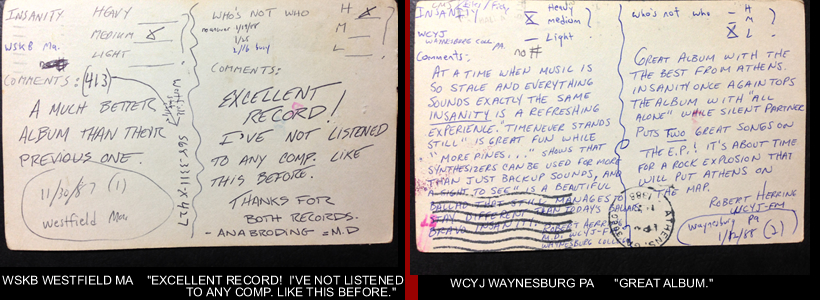 INSANITY HEAVY
MEDIUM X
WSKB Ma.
LIGHT
COMMENTS: (413)
A MUCH BETTER
ALBUM THAN THEIR
PREVIOUS ONE.
568-3311-X427
11/30/87 (1)
Westfield Ma
WHO'S NOT WHO H X
M
L
COMMENTS:
EXCELLENT
RECORD!
I'VE NOT LISTENED
TO ANY COMP. LIKE
THIS BEFORE.
THANKS FOR
BOTH RECORDS.
- ANA BRODING = M.D
INSANITY Heavy
X medium
WCYJ - Light
WAYNESBURG COLL PA. no #
Comments:
AT A TIME WHEN MUSIC IS
SO STALE AND EVERYTHING
SOUNDS EXACTLY THE SAME
INSANITY IS A REFRESHING
EXPERIENCE. "TIME NEVER STANDS
STILL" IS GREAT FUN WHILE
"MORE PINES..." SHOWS THAT
SYNTHESIZERS CAN BE USED FOR MORE
THAN JUST BACKUP SOUNDS, AND
"A SIGHT TO SEE" IS A BEAUTIFUL
BALLAD THAT STILL MANAGES TO
STAY DIFFERENT THAN TODAY'S
BRAVO INSANITY! ROBERT HERRING
M.D. WCYJ-FM
WAYNESBURG COLL
WHO'S NOT WHO - H
X M
X L
GREAT ALBUM WITH THE
THE BEST FROM ATHENS.
INSANITY ONCE AGAIN TOPS
THE ALBUM WITH "ALL
ALONE" WHILE SILENT PARTNER
PUTS TWO GREAT SONGS ON
THE E.P.! IT'S ABOUT TIME
FOR A ROCK EXPLOSION THAT
WILL PUT ATHENS ON
THE MAP.
ROBERT HERRING
WCYJ-FM
Waynesburg Pa
1/12/88 (2)
ATHENS
WSKB WESTFIELD MA "EXCELLENT RECORD! I'VE NOT LISTENED
TO ANY COMP. LIKE THIS BEFORE."
WCYJ WAYNESBURG PA "GREAT ALBUM."